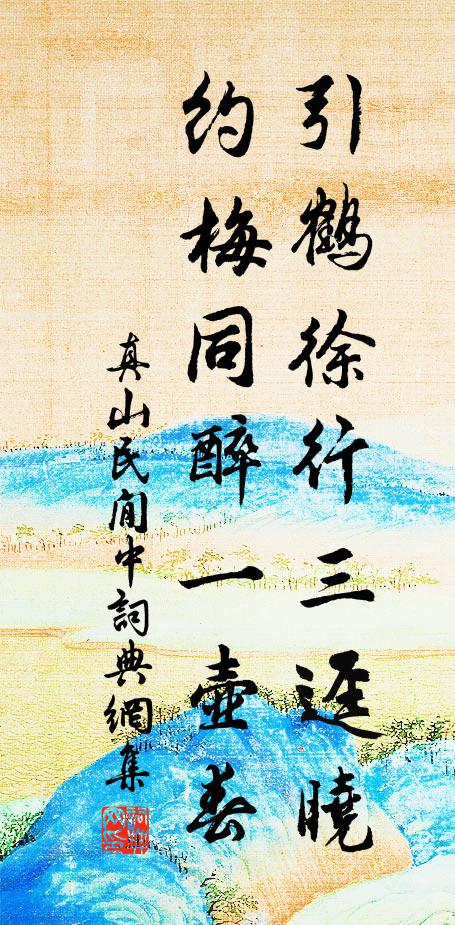 引鶴徐行三逕曉
約梅同醉一壺春
真山民閒中詞典網集